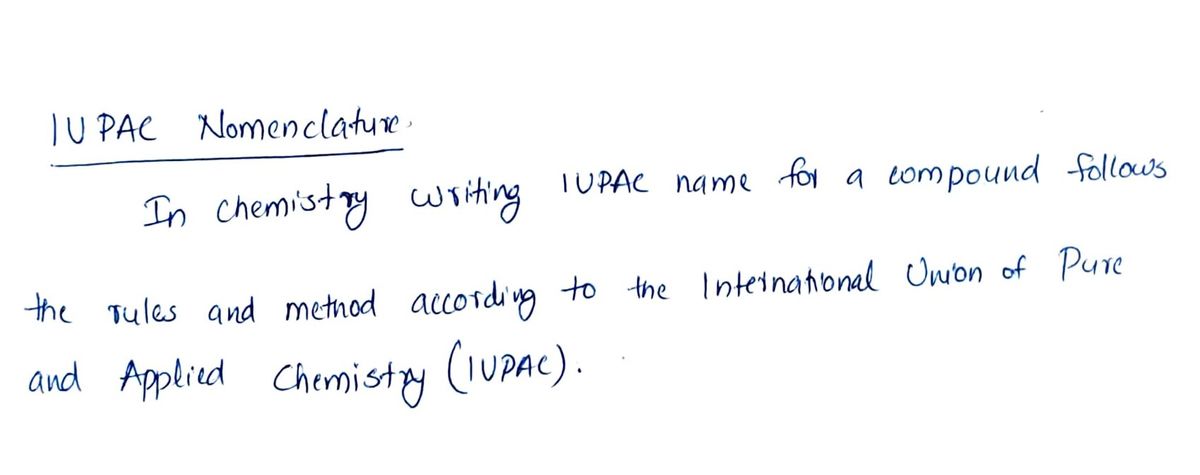 IUPAC Nomenclature.
In chemistry writing IUPAC name for a compound follows
the rules and method according to the International Union of Pure
and Applied Chemistry (IUPAC).